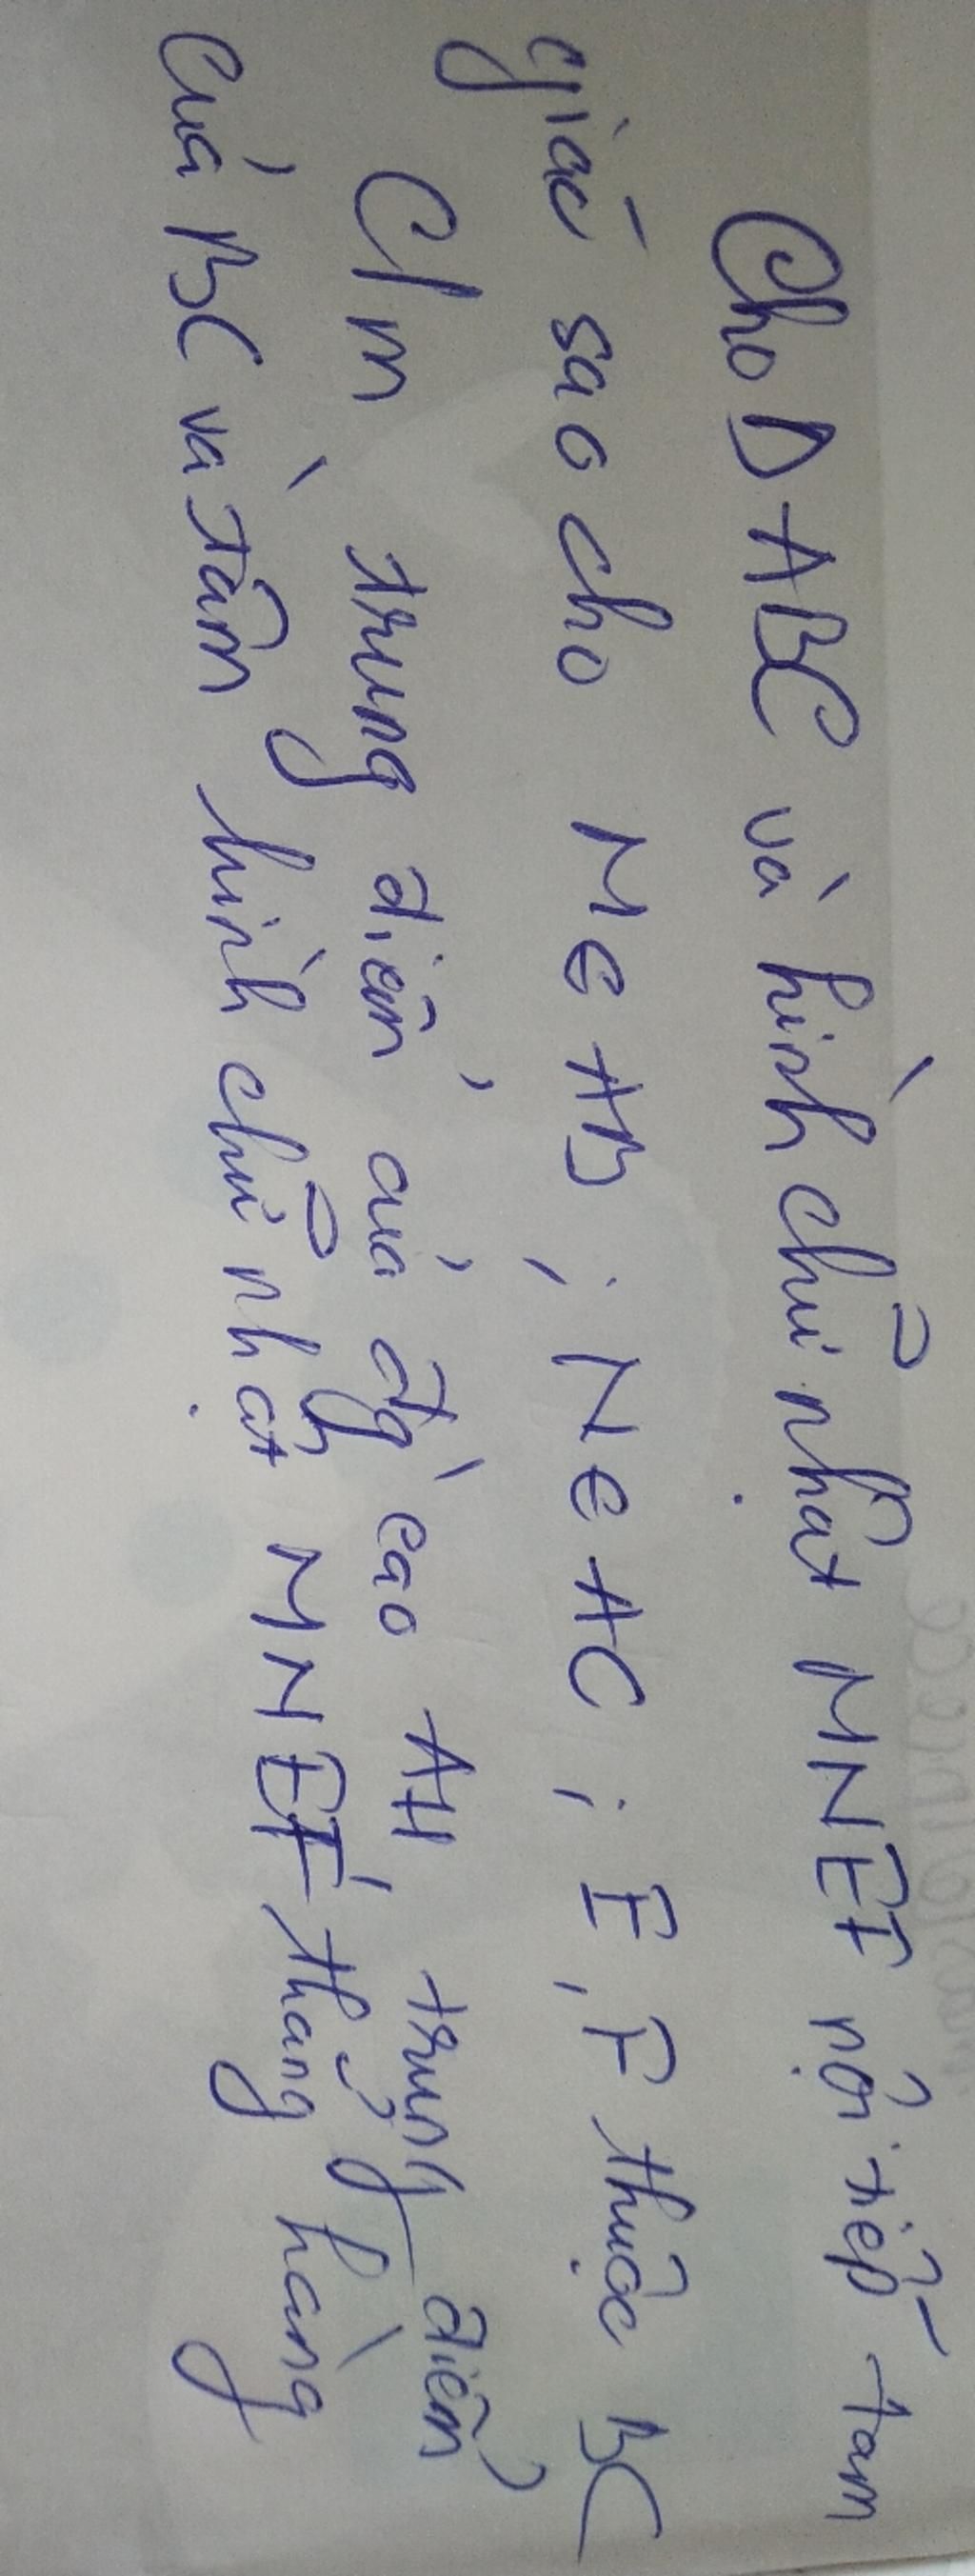 Cho Δ ABC và hình chữ nhật MNEF nội tiếp tam
giác sao cho M ∈ AB ; N ∈ AC ; E, F thuộc BC
C/m trung điểm của đg cao AH, trung điểm
của BC và tâm hình chữ nhật MNEF thẳng hàng